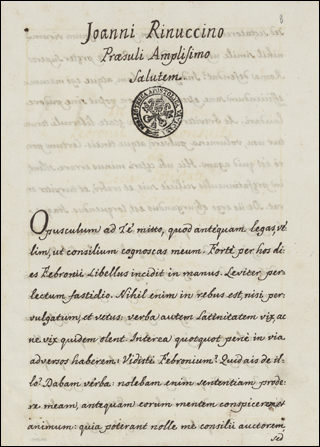 8
Joanni Rinuccino
Præsuli Amplisimo
Salutem.
BIBLIOTHECA APOSTOLICA VATICANA
Opusculum ad Te mitto, quod antequam legas, ve
lim, ut consilium cognoscas meum. Forte per hos di-
es Febronii Libellus incidit in manus. Leviter per
lectum fastidio. Nihil enim in rebus est, nisi per
vulgatum, et vetus: verba autem Latenitatem vix, ac
ne vix quidem olent. Interea quotquot pene in via
adversos haberem: Vidisti Febronium? Quid ais de il-
lo? Dabam verba: nolebam enim sententiam prode-
re meam, antequam eorum mentem conspicerem et
animum: quia poterant nolle me consilii auctorem,
sed